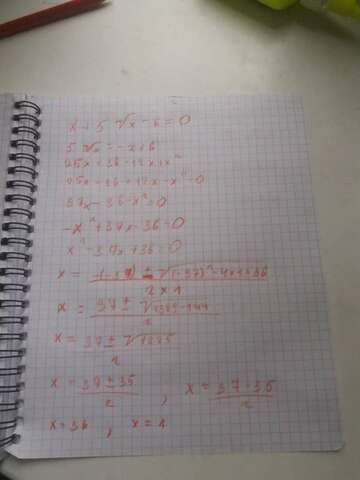 x + 5 √x - 6 = 0
5 √x = -x + 6
25x = 36 - 12x + x²
25x - 36 + 12x - x² = 0
37x - 36 - x² = 0
-x² + 37x - 36 = 0
x² - 37x + 36 = 0
x = (-(-37) ± √(-37)² - 4 x 1 x 36) / 2 x 1
x = (37 ± √1369 - 144) / 2
x = (37 ± √1225) / 2
x = (37 ± 35) / 2 , x = (37 - 35) / 2
x = 36 , x = 1